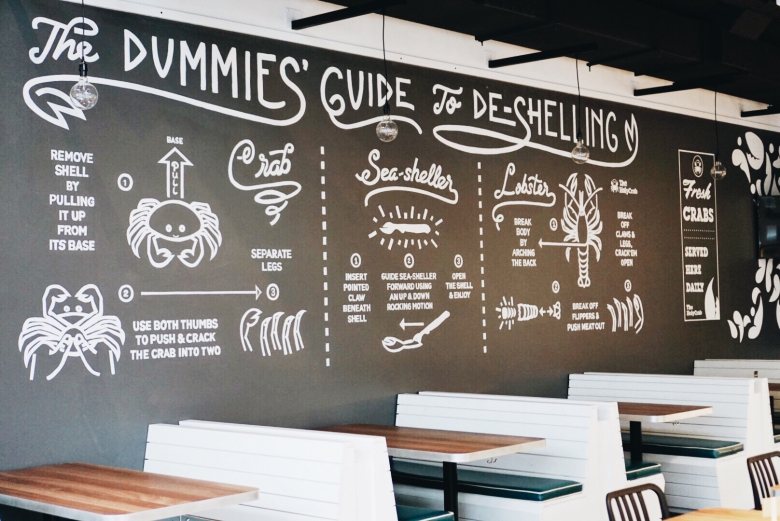 The DUMMIES' GUIDE To DE-SHELLING
REMOVE
SHELL
BY
PULLING
IT UP
FROM
ITS BASE
1
BASE
PULL
Crab
SEPARATE
LEGS
2
3
USE BOTH THUMBS
TO PUSH & CRACK
THE CRAB INTO TWO
Sea-sheller
1
INSERT
POINTED
CLAW
BENEATH
SHELL
2
GUIDE SEA-SHELLER
FORWARD USING
AN UP & DOWN
ROCKING MOTION
3
OPEN
THE SHELL
& ENJOY
Lobster
BREAK
BODY
BY
ARCHING
THE BACK
BREAK
OFF
CLAWS &
LEGS,
CRACK'EM
OPEN
BREAK OFF
FLIPPERS &
PUSH MEAT OUT
Fresh
CRABS
SERVED
HERE
DAILY